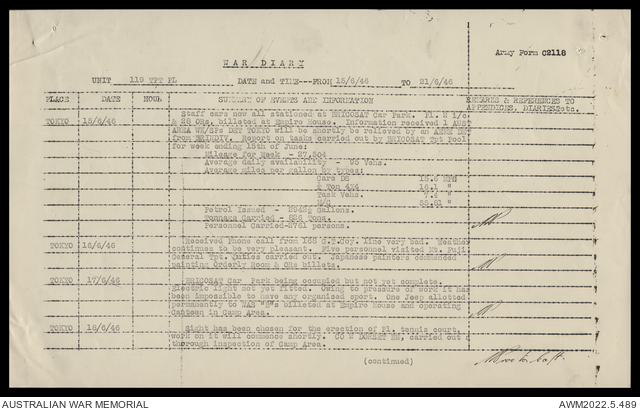 Army Form C2118
WAR DIARY
UNIT 119 TPT PL DATE and TIME---FROM 15/6/46 TO 21/6/46
PLACE DATE HOUR SUMMARY OF EVENTS AND INFORMATION REFERENCES TO
APPENDICES, DIARIES, etc.
TOKYO 15/6/46 Staff cars now all stationed at BRICOSAT Car Park. Pl. 2 i/c
& 28 ORs. billeted at Empire House. Information received 1 AUST
AREA WK/SPs DET TOKYO will be shortly be relieved by an AEME DET
from. Report on tasks carried out by BRICOSAT Tpt Pool
for week ending 15th of June:
Mileage for Week - 27,504
Average daily availability - 95 Vehs.
Average miles per gallon by types:
Cars
Ton 4X4 16.1 "
Task Vehs.
M/C
Petrol Issued - Gallons.
Tonnage Carried - Tons.
Personnel Carried-2761 persons.
TOKYO 16/6/46 Received Phone call from G.T. Coy. line very bad. Weather
continues to be very pleasant. Five personnel visited Mt. Fuji
General Tpt. Duties carried out. Japanese painters commenced
painting Orderly Room & ORs billets.
TOKYO 17/6/46 BRICOSAT Car Park being occupied but not yet complete.
Electric light not yet fitted. Owing to pressure of work it has
been impossible to have any organised sport. One Jeep allotted
permanently to billeted at Empire House and operating
Canteen in Camp Area.
TOKYO 18/6/46 Sight has been chosen for the erection of Pl. tennis court,
work on it will commence shortly. CO 2 DORSET RE, carried out a
thorough inspection of Camp Area.
(continued)
Capt.
AUSTRALIAN WAR MEMORIAL AWM2022.5.489